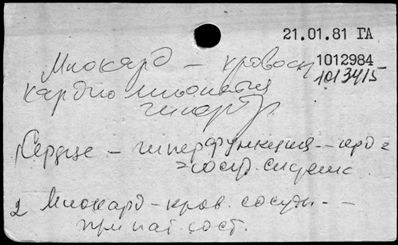 21.01.81 ГА
Миокард - кровосн
1012984
1013415
кардиомиопатия
гипертр
Сердце - гиперфункция --
сосуд. система
2 Миокард - кров. сосуды --
при пат. сост.